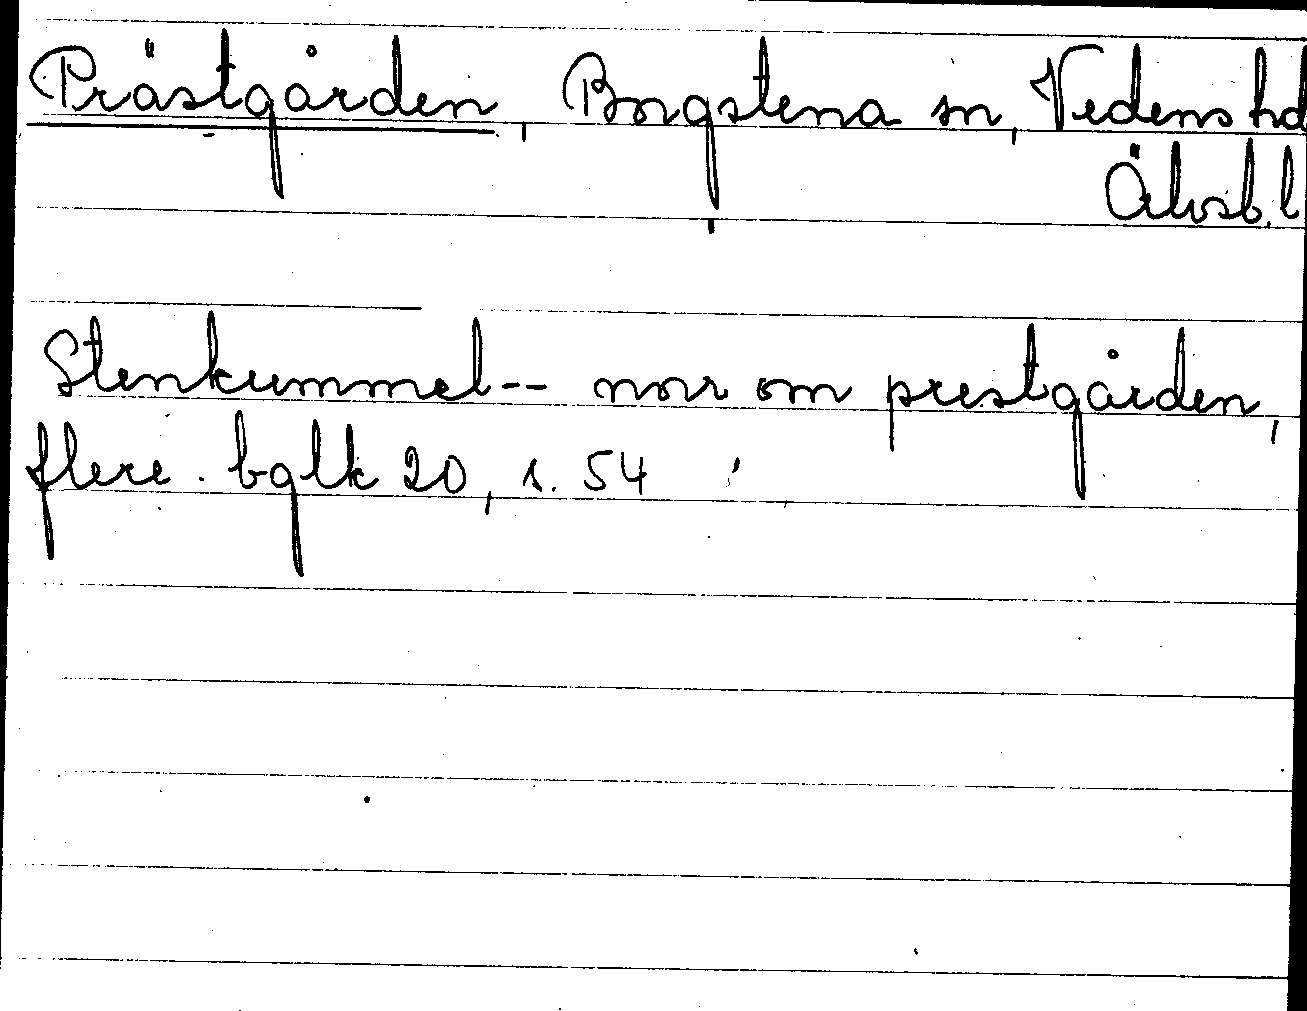 Prästgården, Borgstena sn, Vedens hd
Älvsb. l
Stenkummel-- norr om prestgården,
flere. bglk 20, s. 54